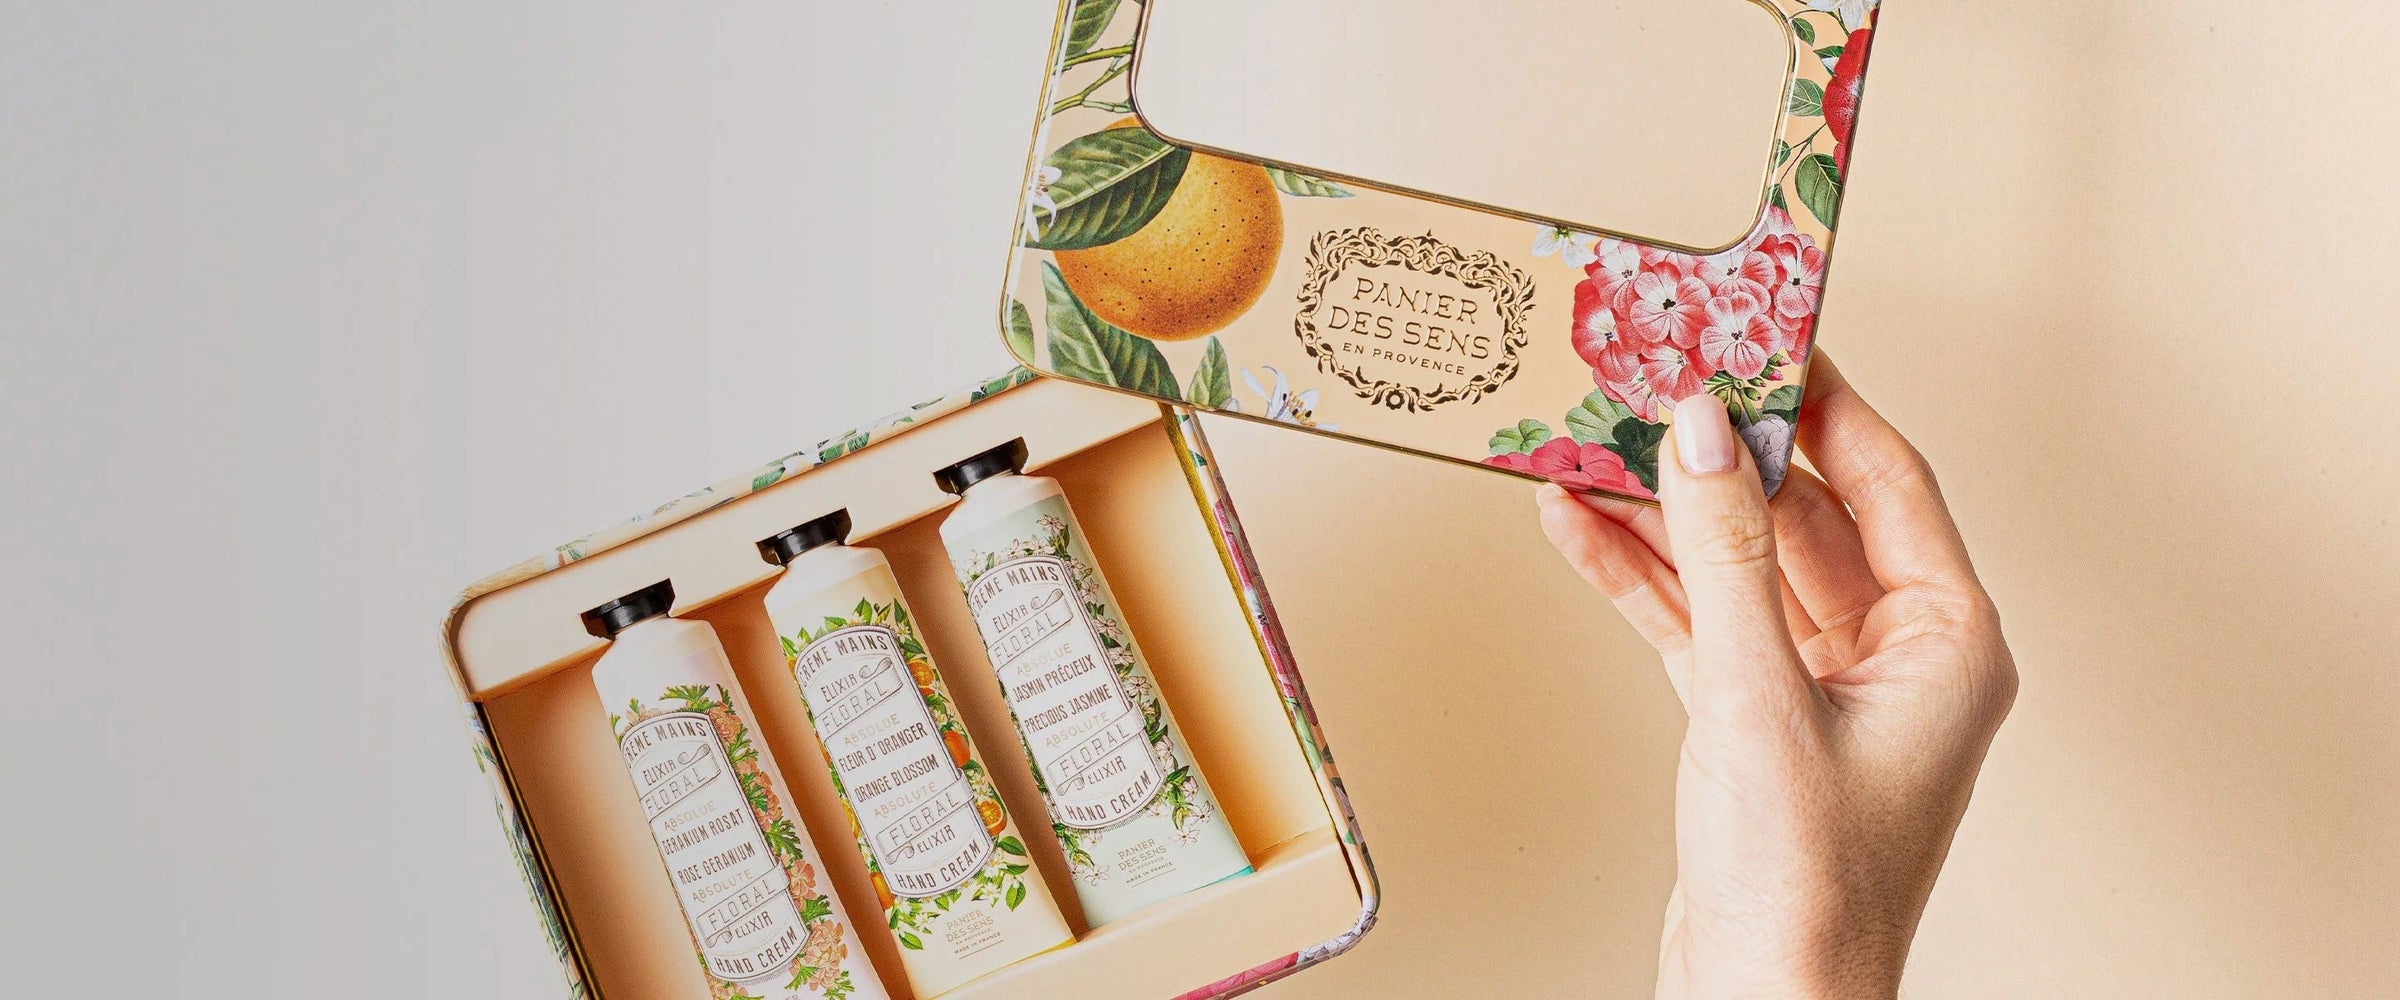 PANIER
DES SENS
EN PROVENCE
CRÈME MAINS
ELIXIR
FLORAL
ABSOLUE
GERANIUM ROSAT
ROSE GERANIUM
ABSOLUTE
FLORAL
ELIXIR
HAND CREAM
CRÈME MAINS
ELIXIR
FLORAL
ABSOLUE
FLEUR D'ORANGER
ORANGE BLOSSOM
ABSOLUTE
FLORAL
ELIXIR
HAND CREAM
PANIER
DES SENS
EN PROVENCE
MADE IN FRANCE
CRÈME MAINS
ELIXIR
FLORAL
ABSOLUE
JASMIN PRÉCIEUX
PRECIOUS JASMINE
ABSOLUTE
FLORAL
ELIXIR
HAND CREAM
PANIER
DES SENS
EN PROVENCE
MADE IN FRANCE